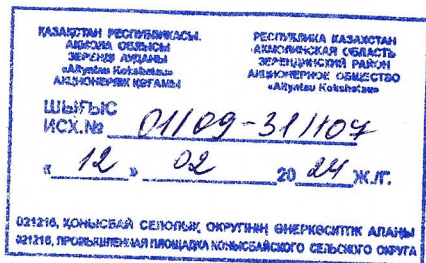 ҚАЗАҚСТАН РЕСПУБЛИКАСЫ.
АҚМОЛА ОБЛЫСЫ
ЗЕРЕНДІ АУДАНЫ
«Altyntau Kokshetau»
АКЦИОНЕРЛІК ҚОҒАМЫ
РЕСПУБЛИКА КАЗАХСТАН
АКМОЛИНСКАЯ ОБЛАСТЬ
ЗЕРЕНДИНСКИЙ РАЙОН
АКЦИОНЕРНОЕ ОБЩЕСТВО
«Altyntau Kokshetau»
ШЫҒЫС
ИСХ.№ 01/09-31/107
« 12 » 02 20 24 Ж./Г.
021216, ҚОНЫСБАЙ СЕЛОЛЫҚ ОКРУГІНІҢ ӨНЕРКӘСІПТІК АЛАҢЫ
021216, ПРОМЫШЛЕННАЯ ПЛОЩАДКА КОНЫСБАЙСКОГО СЕЛЬСКОГО ОКРУГА